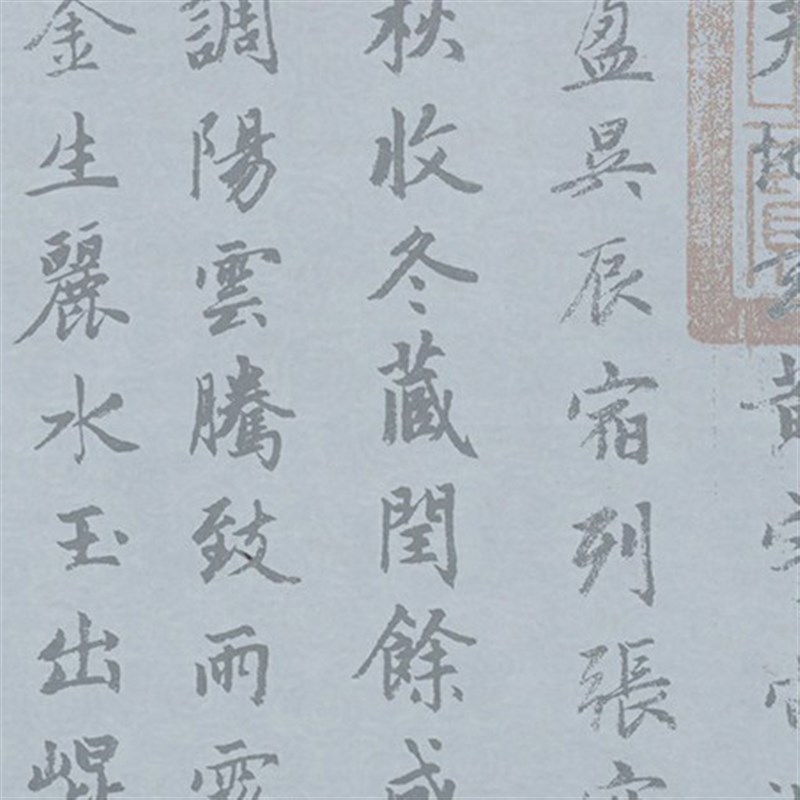 黃
盈昃辰宿列張
秋收冬藏閏餘成
調陽雲騰致雨露
金生麗水玉出崐